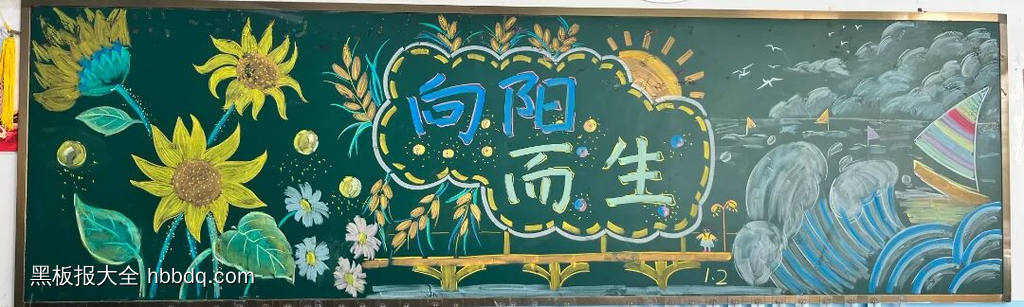 向阳
而生
1.2
黑板报大全 hbbdq.com